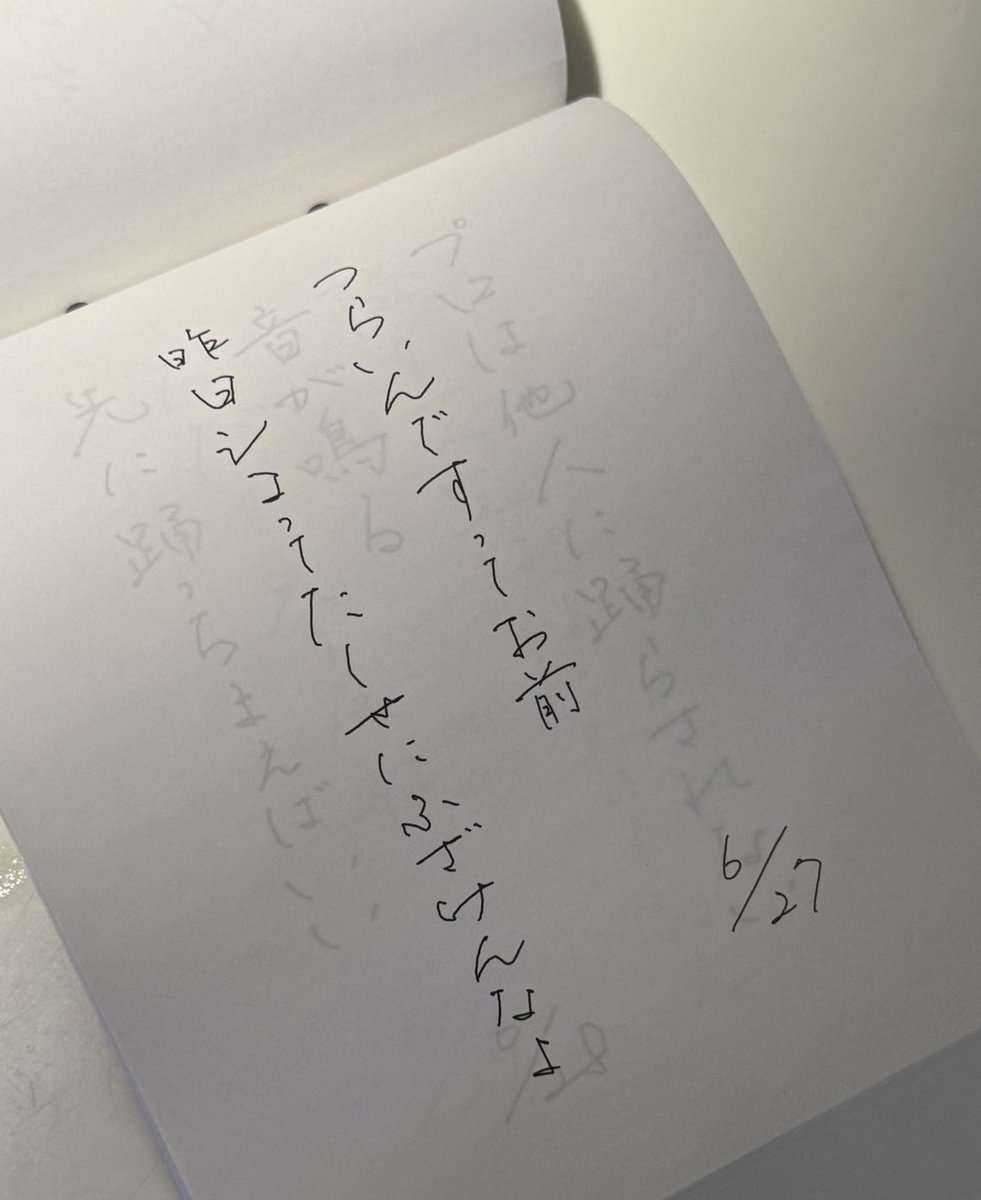 つらいんですってお前
昨日シコってたくせにふざけんなよ
6/27
プロは他人に踊らされ
音が鳴る
先に踊っちまえばいい
6/28